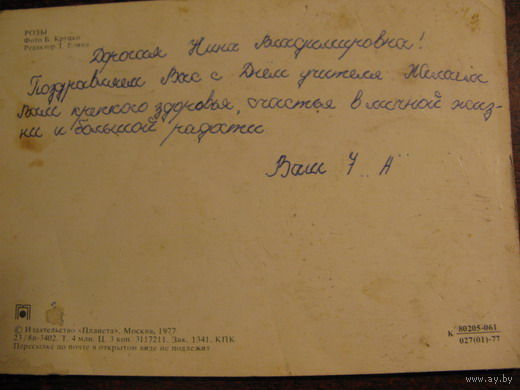 РОЗЫ
Фото Б. Круцко
Редактор Т.
Дорогая Нина Владимировна!
Поздравляем Вас с Днём учителя Желаем
Вам крепкого здоровья, счастья в личной жиз-
ни и большой радости
Ваш 7 "А"
© Издательство «Планета». Москва, 1977
23/8в-3402. Т. 4 млн. Ц. 3 коп. 3117211. Зак. 1341. КПК
Пересылке по почте в открытом виде не подлежит
К 80205-061
027(01)-77
www.ay.by